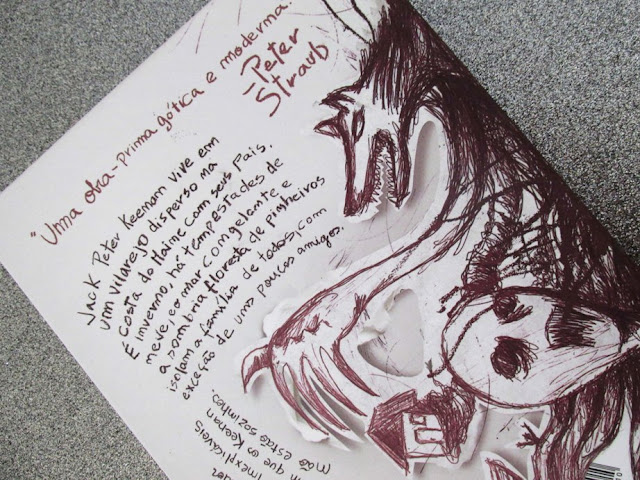 "Uma obra-prima gótica e moderna."
-Peter
Straub
Jack Peter Keenan vive em
um vilarejo disperso na
Costa do Maine com seus Pais.
É inverno, há tempestades de
neve, o mar congelante e
a sombria floresta de pinheiros
isolam a família de todos, com
exceção de uns poucos amigos.
inexplicáveis
que os Keenan
não estão sozinhos.